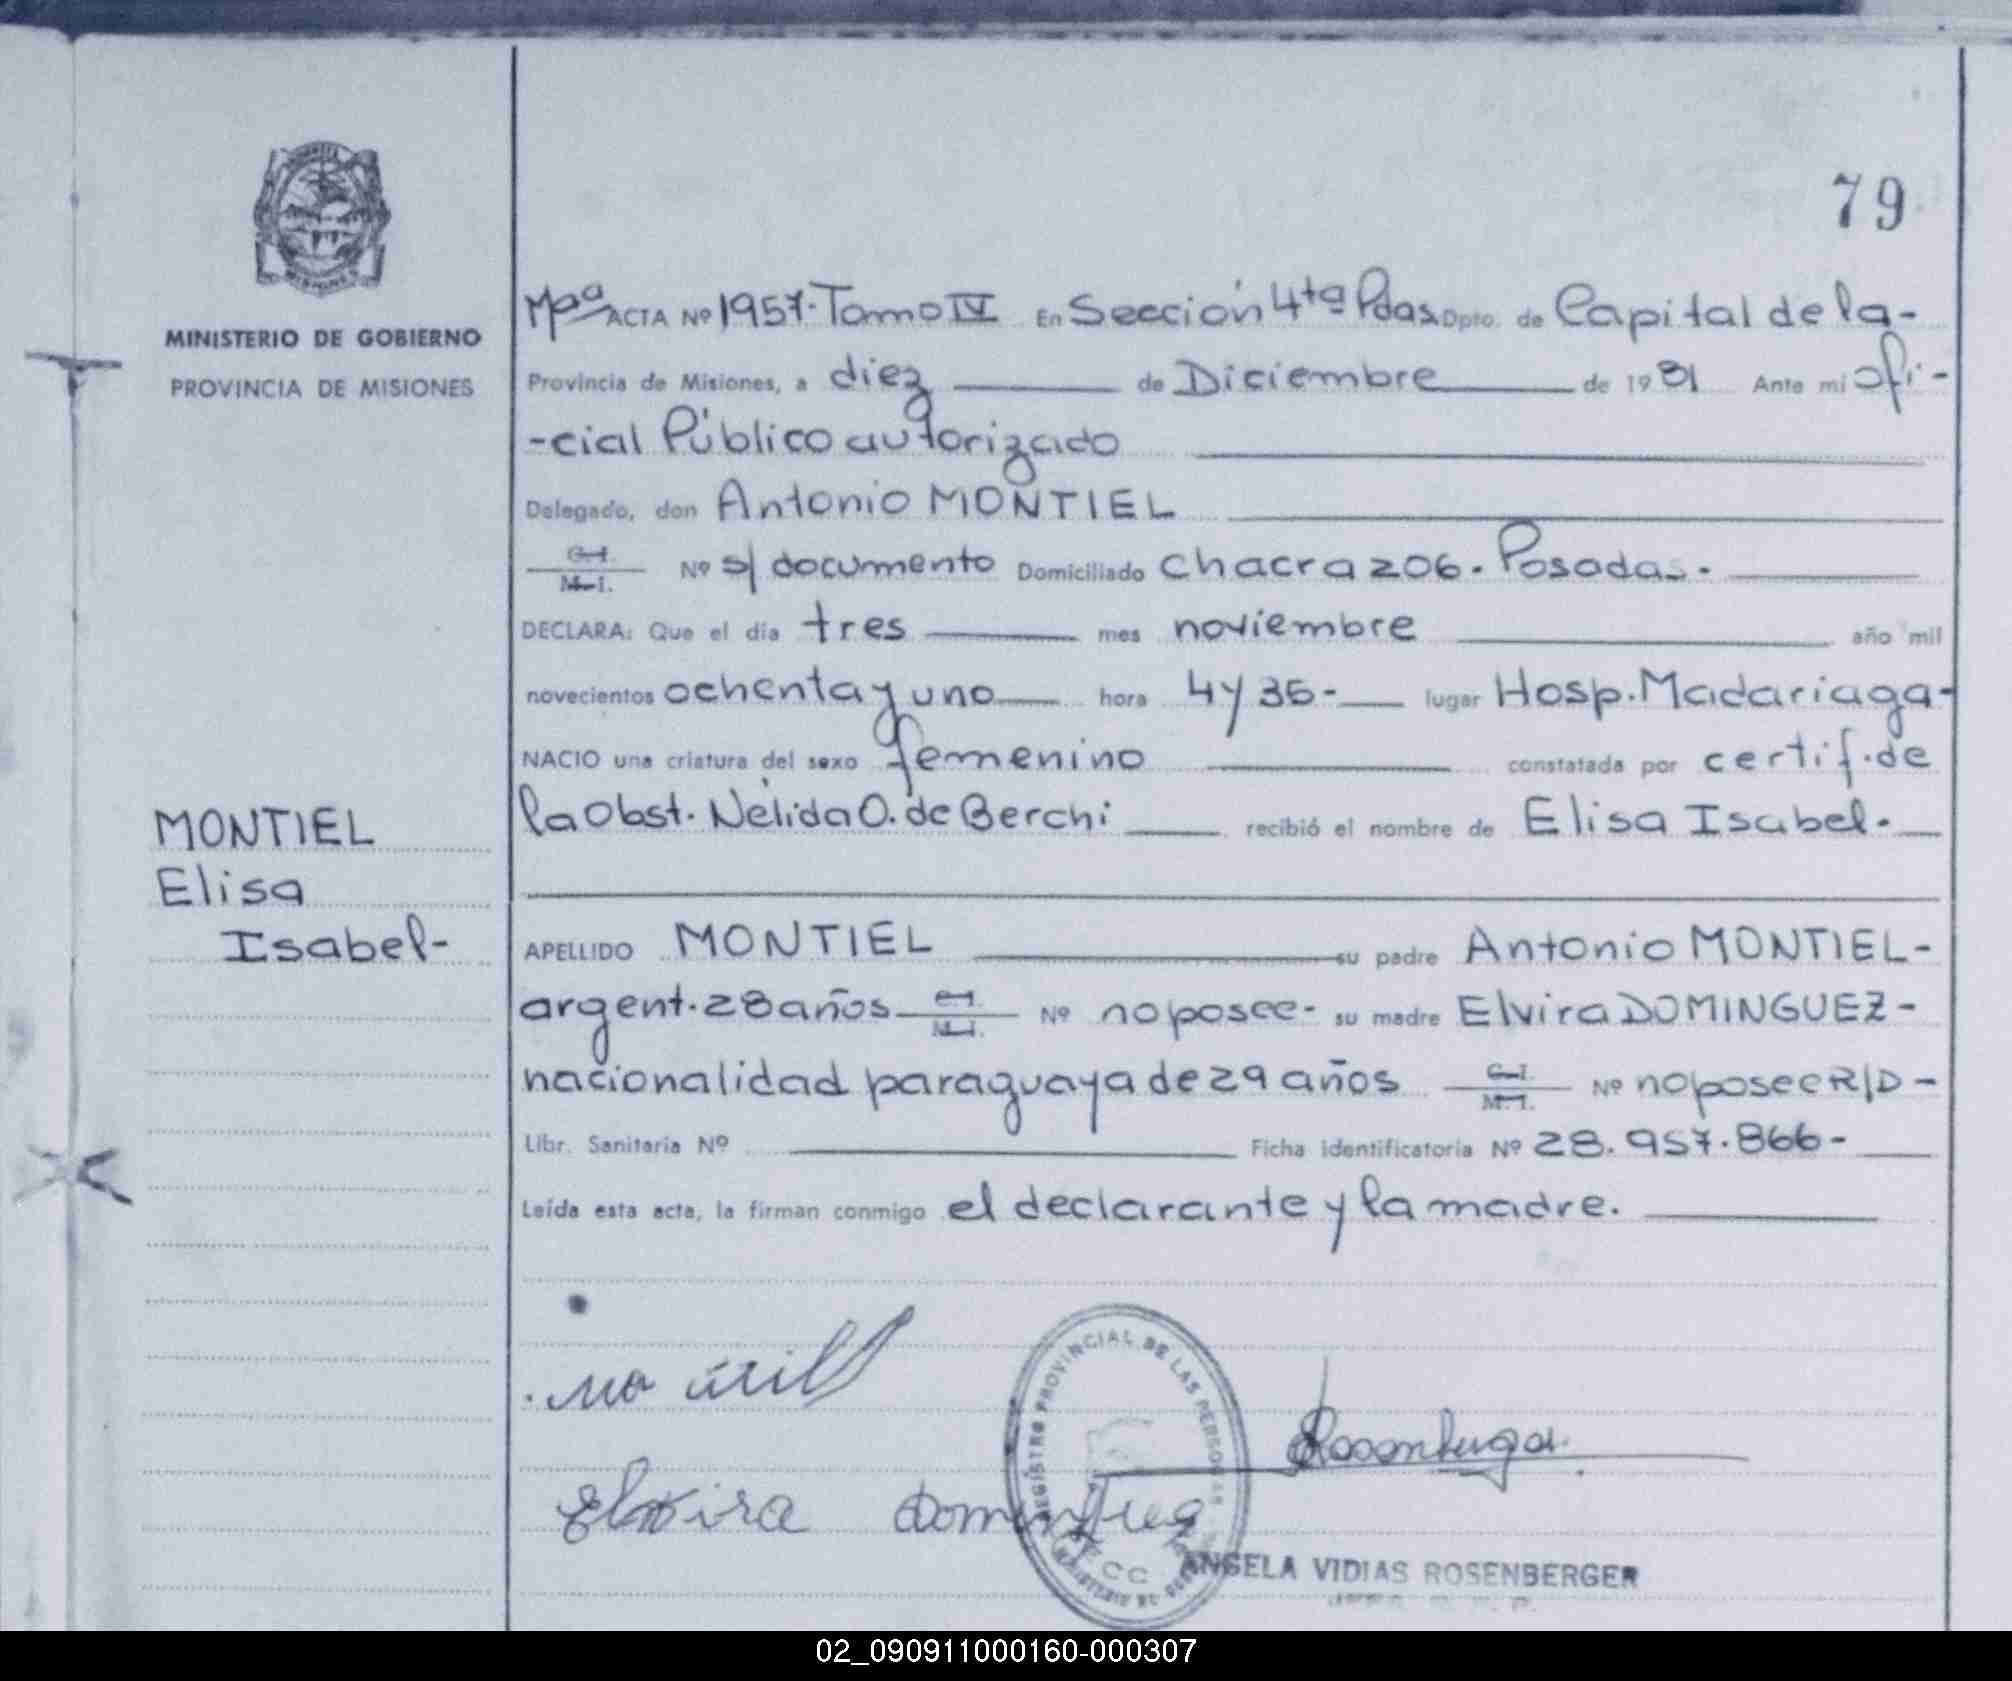 79
MINISTERIO DE GOBIERNO
PROVINCIA DE MISIONES
ACTA Nº 1957. Tomo IV En Sección 4ta Pdas. Dpto. de Capital de la-
Provincia de Misiones, a diez de Diciembre de 1981 Ante mi ofi-
-cial Público autorizado
Delegado, don Antonio MONTIEL
C.I.
M.I. Nº s/ documento Domiciliado chacra 206. Posadas.
DECLARA: Que el día tres mes noviembre año mil
novecientos ochenta y uno hora 4 y 35- lugar Hosp. Madariaga-
NACIO una criatura del sexo femenino constatada por certif. de
la Obst. Nélida O. de Berchi recibió el nombre de Elisa Isabel.
MONTIEL
Elisa
Isabel-
APELLIDO MONTIEL su padre Antonio MONTIEL-
argent. 28 años C.I.
M.I. Nº no posee- su madre Elvira DOMINGUEZ-
nacionalidad paraguaya de 29 años C.I.
M.I. Nº no posee R/D-
Libr. Sanitaria Nº Ficha identificatoria Nº 28.957.866-
Leída esta acta, la firman conmigo el declarante y la madre.
Elvira Dominguez
Rosenberger
REGISTRO PROVINCIAL DE LAS PERSONAS
ANGELA VIDIAS ROSENBERGER
02_090911000160-000307